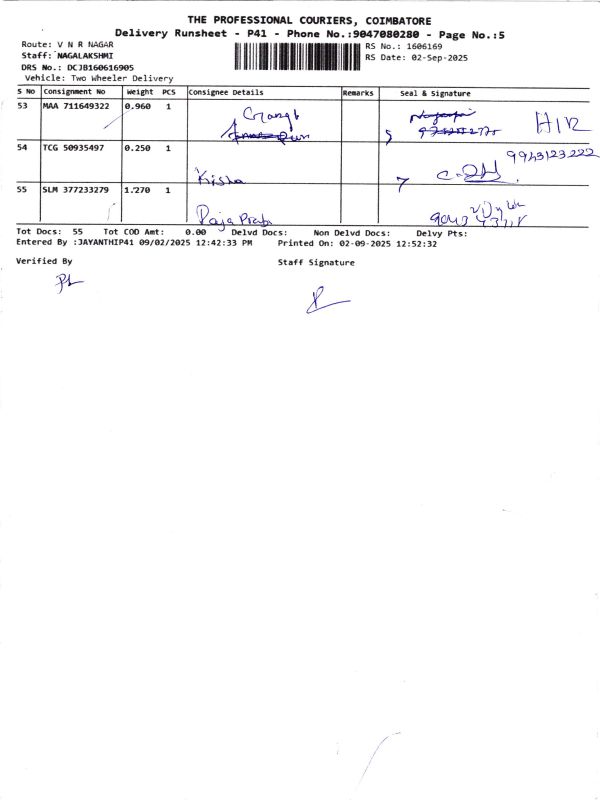 THE PROFESSIONAL COURIERS, COIMBATORE
Delivery Runsheet - P41 - Phone No.:9047080280 - Page No.:5
Route: V N R NAGAR
RS No.: 1606169
Staff: NAGALAKSHMI
RS Date: 02-Sep-2025
DRS No.: DCJB160616905
Vehicle: Two Wheeler Delivery
S No Consignment No Weight PCS Consignee Details Remarks Seal & Signature
53 MAA 711649322 0.960 1
54 TCG 50935497 0.250 1
9943123222
Kisha
55 SLM 377233279 1.270 1
Raja Prab
Tot Docs: 55 Tot COD Amt: 0.00 Delvd Docs: Non Delvd Docs: Delvy Pts:
Entered By :JAYANTHIP41 09/02/2025 12:42:33 PM Printed On: 02-09-2025 12:52:32
Verified By Staff Signature